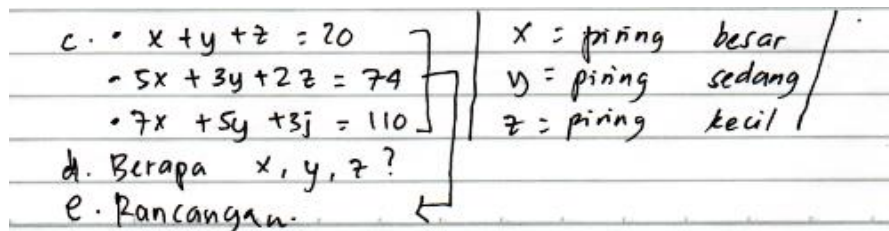 c. • x + y + z = 20
- 5x + 3y + 2z = 74
• 7x + 5y + 3j = 110
x = piring besar
y = piring sedang
z = piring kecil
d. Berapa x, y, z ?
e. Rancangan.